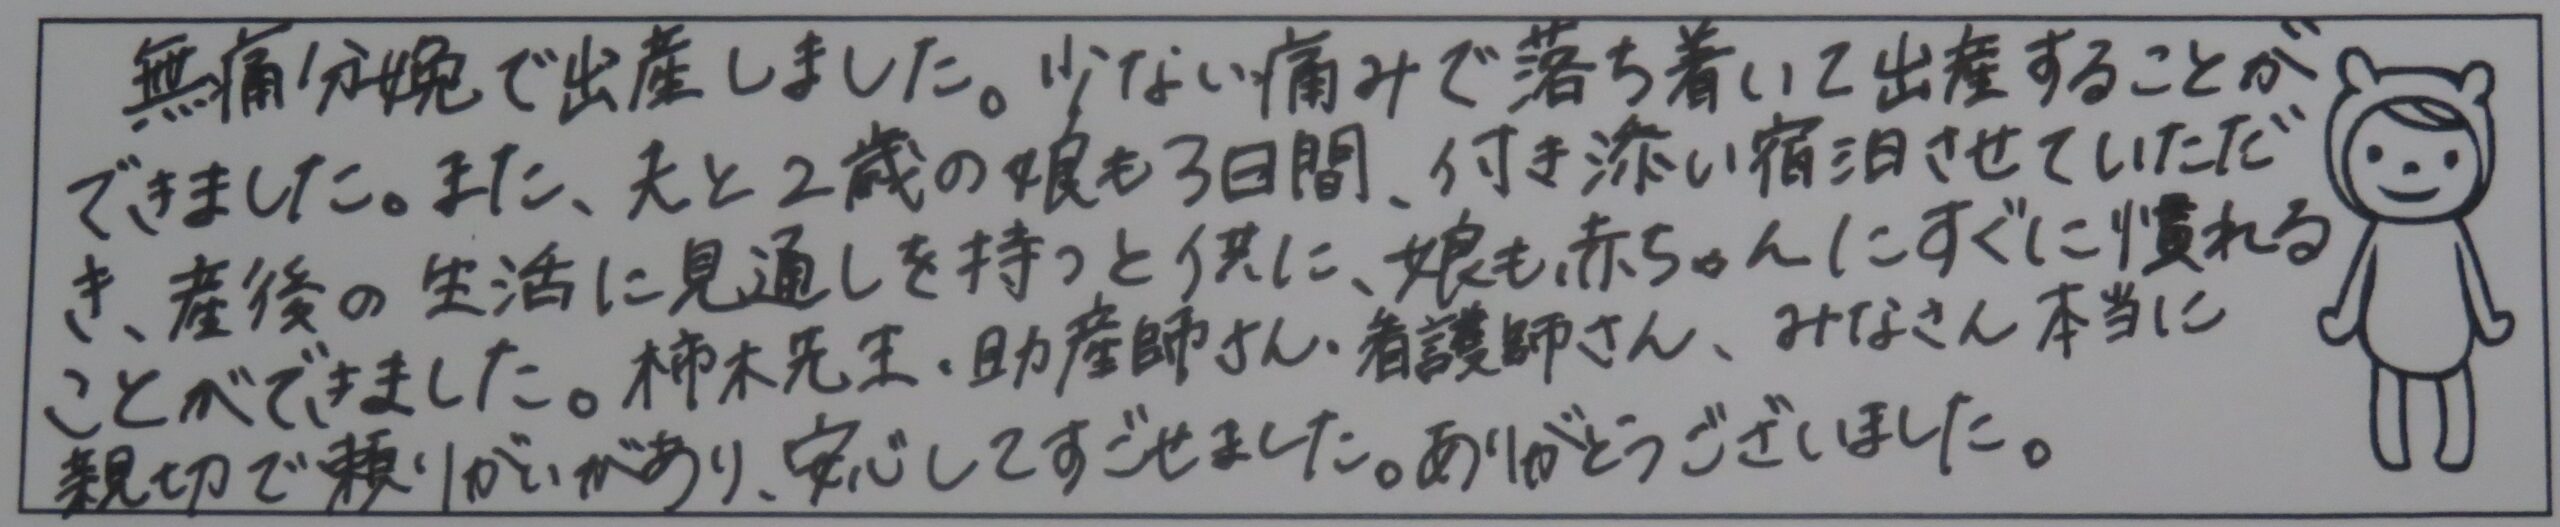 無痛分娩で出産しました。少ない痛みで落ち着いて出産することが
できました。また、夫と2歳の娘も3日間、付き添い宿泊させていただ
き、産後の生活に見通しを持つと供に、娘も赤ちゃんにすぐに慣れる
ことができました。柿木先生・助産師さん・看護師さん、みなさん本当に
親切で頼りがいがあり、安心してすごせました。ありがとうございました。